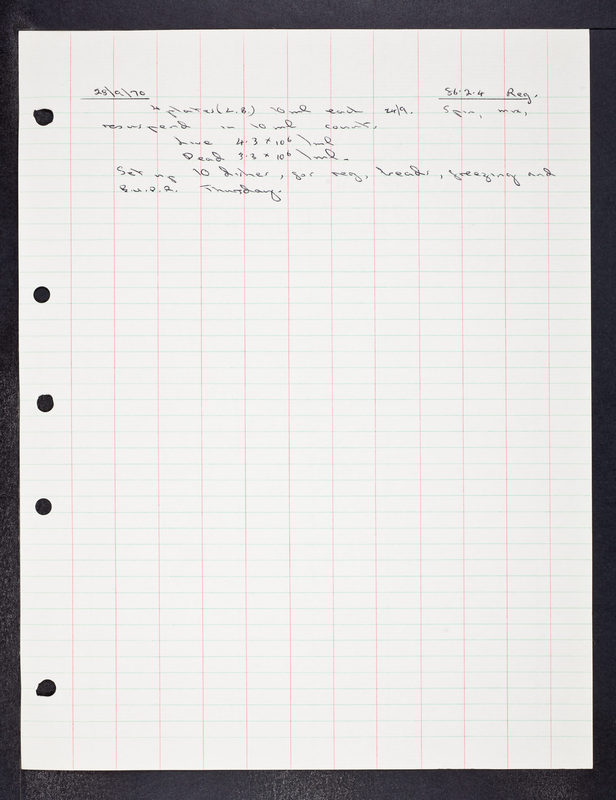 28/9/70 S6.2.4 Reg.
4 plates (L.B.) 10 ml each 24/9. Spin, mix,
resuspend in 10 ml count.
Live 4.3 × 10⁶ / ml
Dead 3.3 × 10⁶ / ml.
Set up 10 dishes, for reg, beads, freezing and
Thursday.